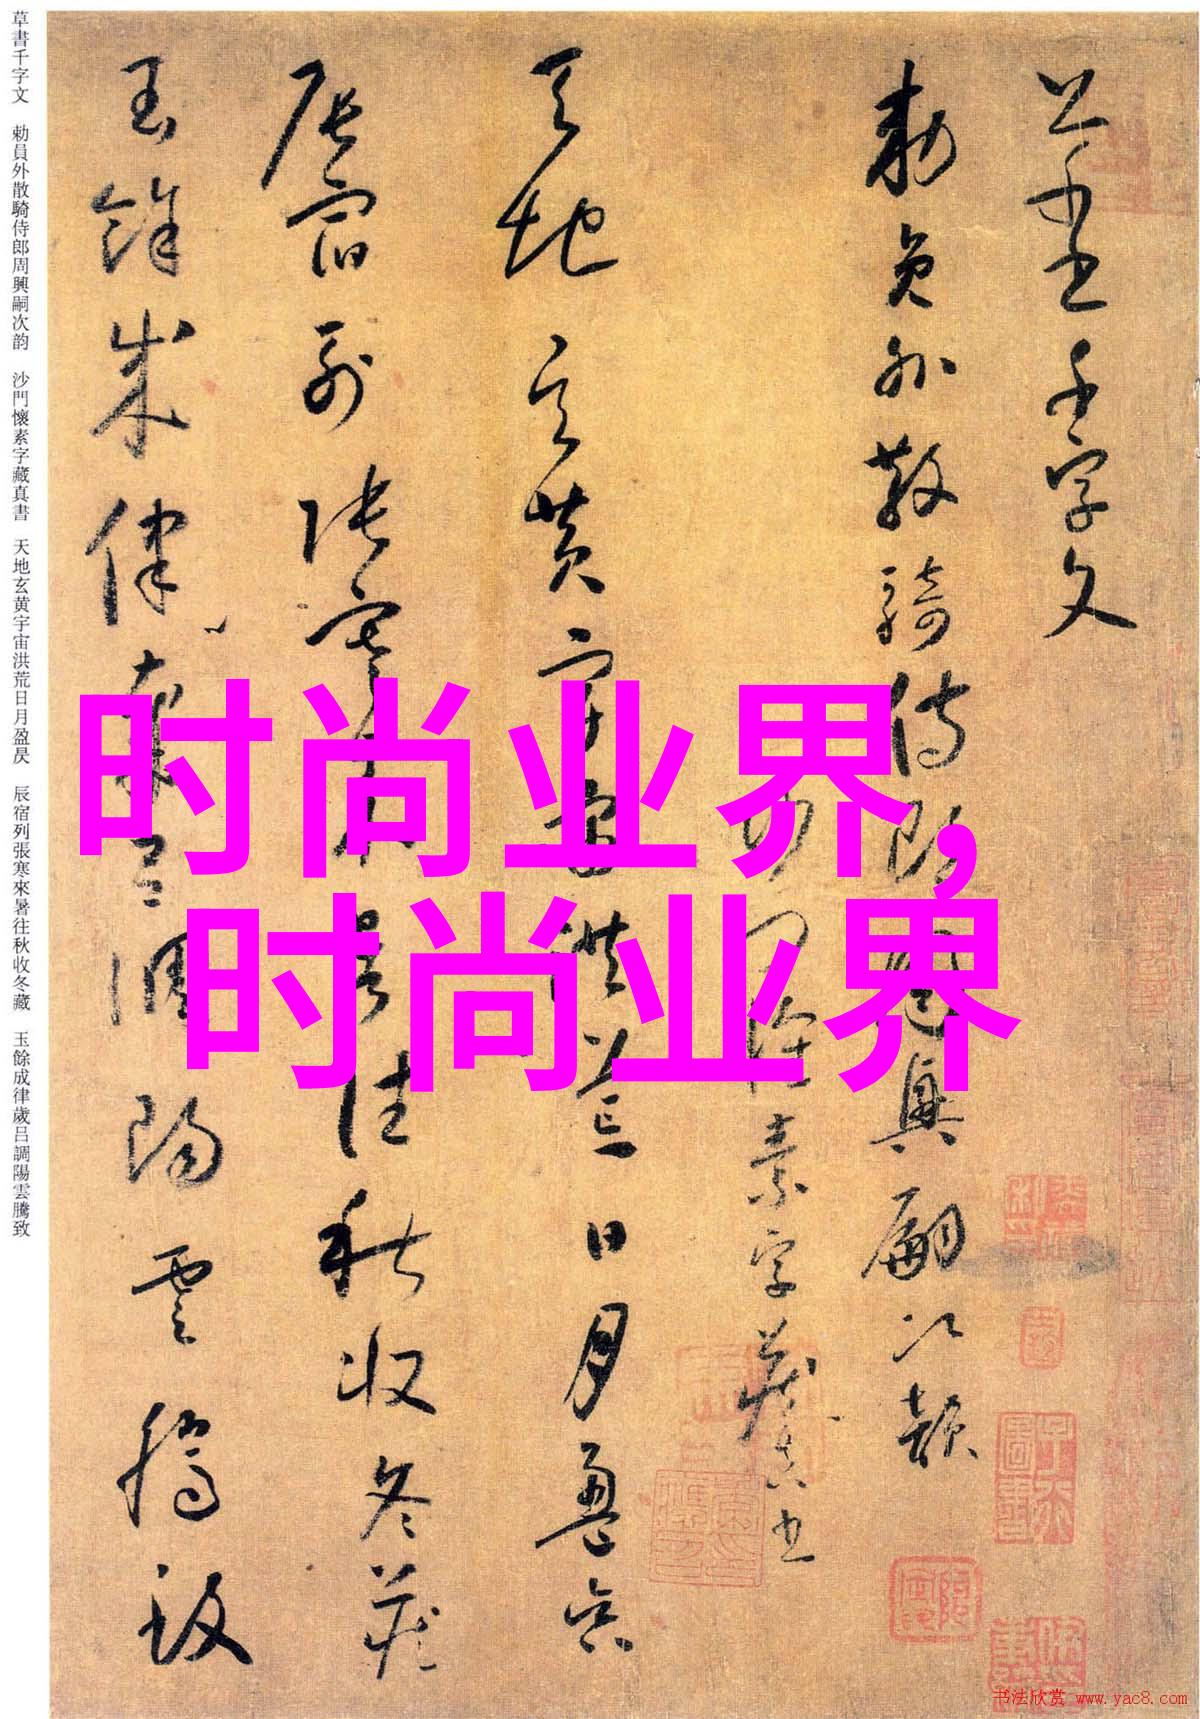 草書千字文 勅員外散騎侍郎周興嗣次韵 沙門懷素字藏真書 天地玄黄宇宙洪荒日月盈昃 辰宿列張寒來暑往秋收冬藏 玉餘成律歲呂調陽雲騰致
草書千字文
勅員外散騎侍郎周興嗣次韻
沙門懷素字藏真書
天地玄黄宇宙洪荒日月盈昃
辰宿列張寒來暑往秋收冬藏
玉餘成律歲呂調陽雲騰致
时尚业界,
时尚业界
书法欣赏 www.yac8.com